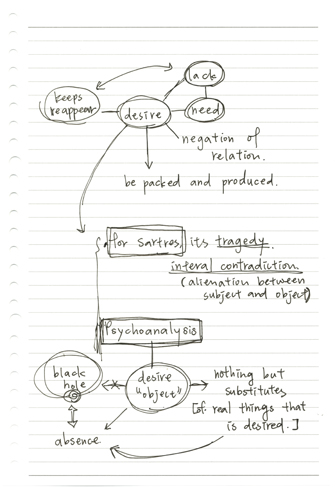 lack
keeps
reappear
desire
need
negation of
relation.
be packed and produced.
for Sartres, its tragedy.
interal contradiction.
(alienation between
subject and object)
Psychoanalysis
black
hole
desire
"object"
nothing but
substitutes
[of real things that
is desired.]
absence